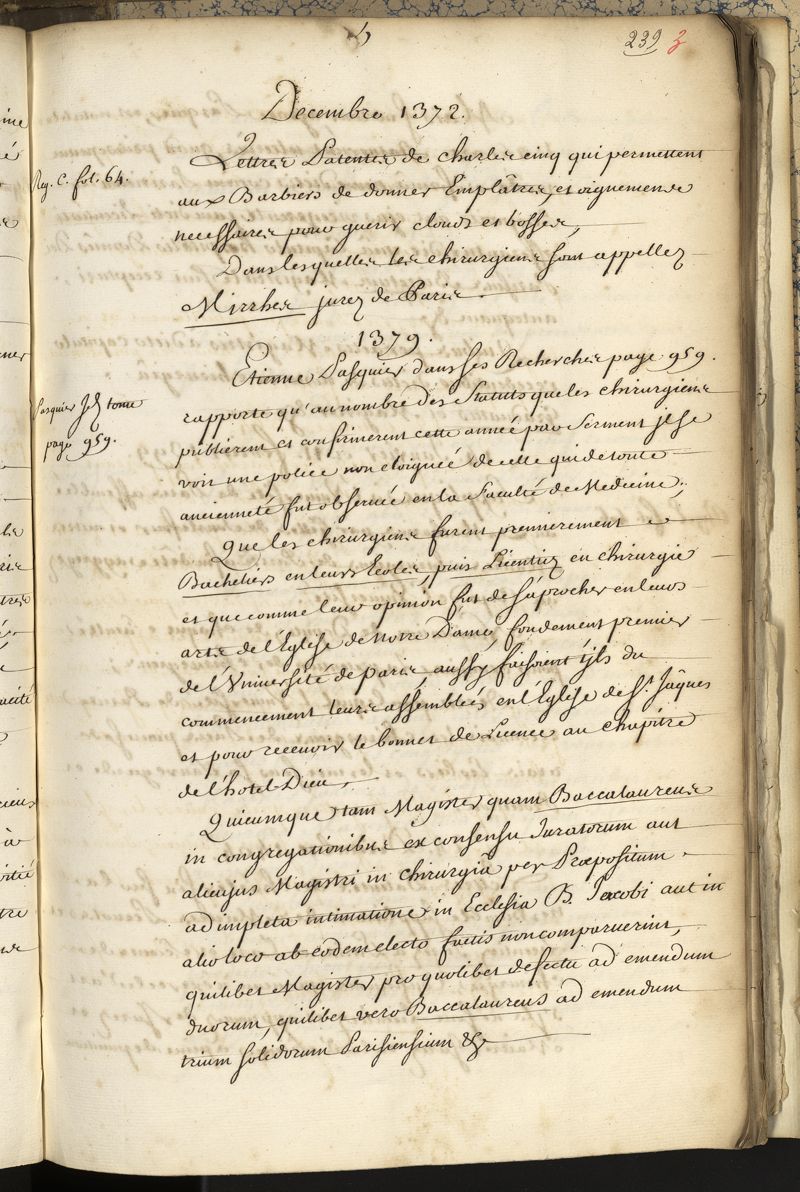 239 3
Decembre 1372.
Reg. C. fol. 64.
Lettres Patentes de Charles cinq qui permettent
aux Barbiers de donner Emplâtres, et oignemens
necessaires pour guerir clouds et bosses,
Dans lesquelles les chirurgiens sont appellez
Mirrhes jurez de Paris.
1379.
Pasquier tome
page 959.
Etienne Pasquier dans ses Recherches page 959.
rapporte qu'au nombre des Statuts que les chirurgiens
publierent et confirmerent cette année par Serment il se
voit une police non eloignée de celle qui de toute
ancienneté fut observée en la Faculté de Medecine;
Que les chirurgiens furent premierement
Bacheliers en leurs Ecoles, puis Licentiez en chirurgie
et que comme leur opinion fut de s'aprocher en leurs
arts de l'Eglise de Notre Dame, fondement premier
de l'Université de Paris, aussy faisoient ijls du
commencement leurs assemblées en l'Eglise de St. Jâques
et pour recevoir le bonnet de Licence au chapitre
de l'hotel-Dieu.
Quicumque tam Magister quam Baccalaureus
in congregationibus ex consensu Juratorum aut
alicujus Magistri in chirurgiâ per Præpositum
adimpleta intimatione in Ecclesia B. Jacobi aut in
alio loco ab eodem electo factis non comparuerint,
quilibet Magister pro quolibet defectu ad emendum
duorum, quilibet vero Baccalaureus ad emendum
trium solidorum Parisiensium &c